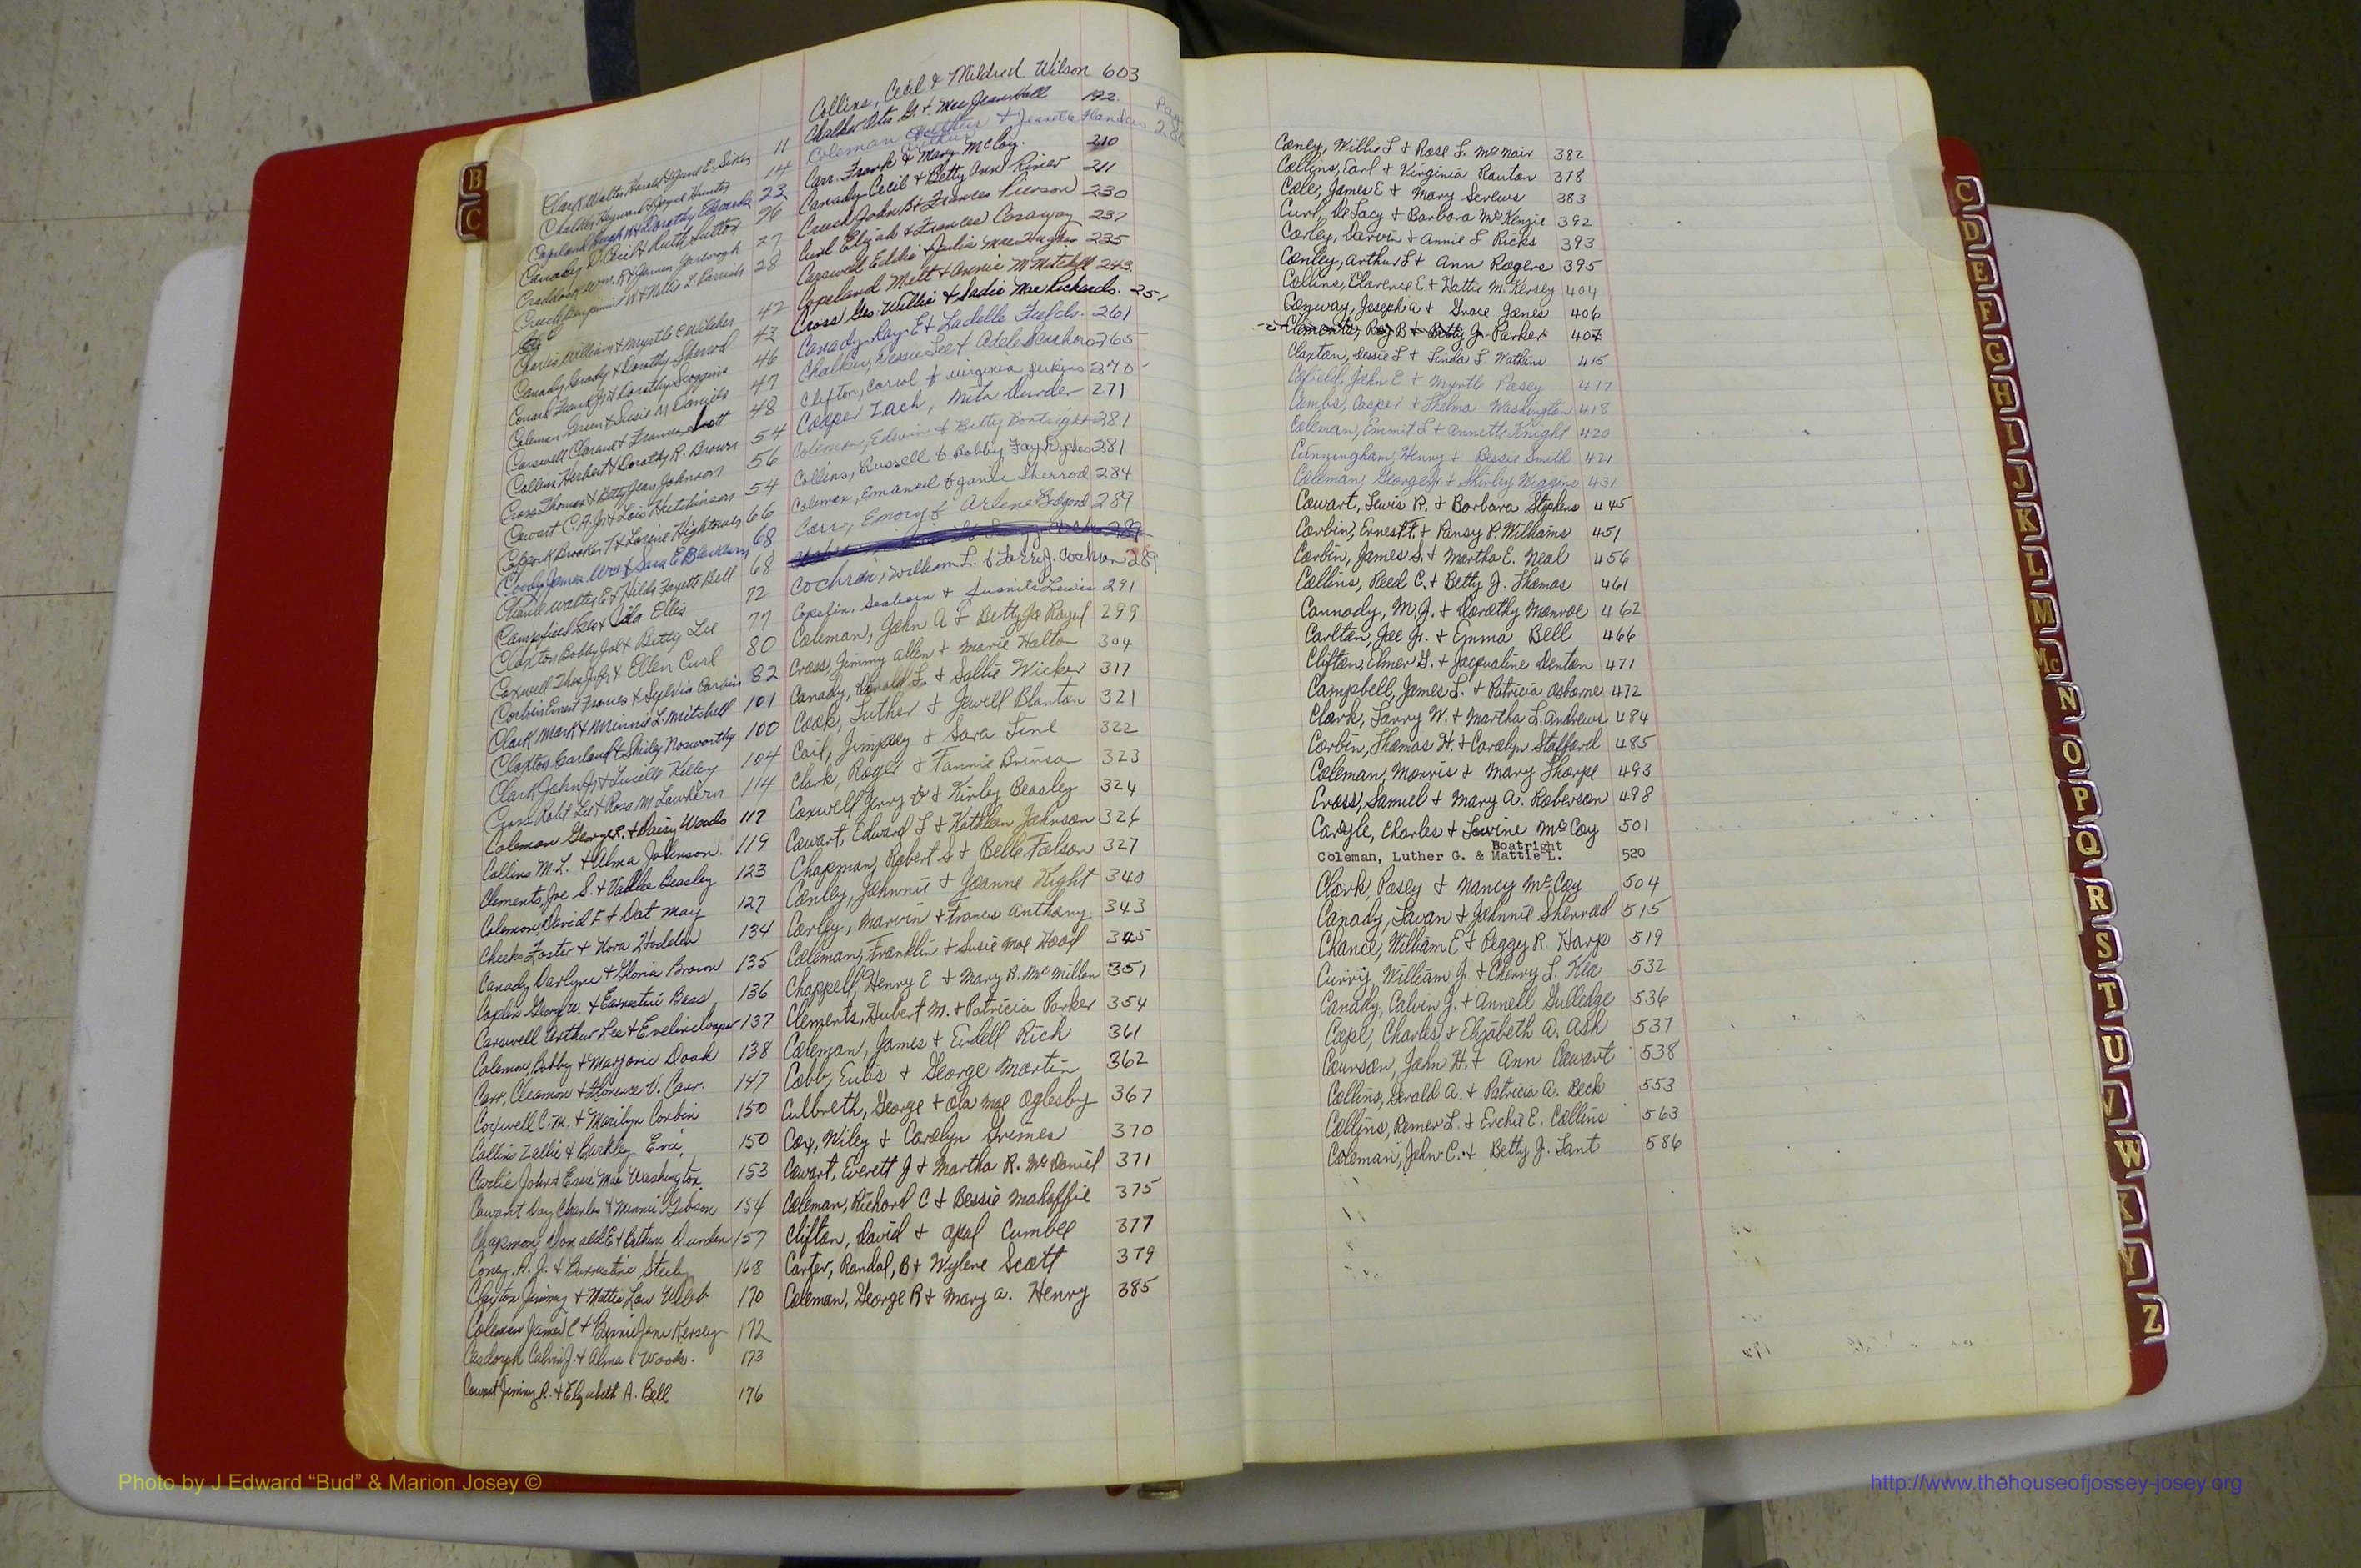 B
C
Clark Walter Harold & June E. Sikes 11
Chalker Heyward & Joyce Hunter 14
Copeland Hugh H & Dorothy Edwards 23
Canady D. Cecil & Ruth Sutton 26
Craddock Wm. R & Yarbrough 27
Creech Benjamin W & Nellie L. Parrish 28
William & Myrtle C 42
Canady Grady & Dorothy Sherrod 43
Conard Frank Jr & Dorothy Scoggins 46
Coleman Green & Susie M Daniels 47
Carswell Claud & Frances Scott 48
Collins Herbert & Dorothy R. Brown 54
Cross Thomas & Betty Jean Johnson 56
Cowart C.A. Jr & Lois Hutchinson 54
Brooker T & Lorine Hightower 66
Coody James Wm & Sara E Blackburn 68
Walter E & Hilda Fayette Bell 68
Campfield & Ida Ellis 72
Claxton Bobby Joe & Betty Lee 77
Coxwell Thos J Jr & Ellen Curl 80
Corbin Ernest Frances & Sylvia Corbin 82
Clark Mark & Minnie L. Mitchell 101
Claxton Garland & Shirley Nosworthy 100
Clark John Jr & Lucille Kelley 104
Robt Lee & Rosa M Lawhorn 114
Coleman George R. & Daisy Woods 117
Collins M.L. & Alma Johnson. 119
Clements, Joe S. & Beasley 123
Coleman David F & Dot May 127
Cheeks Foster & Nora Hodden 134
Canady Darlyne & Gloria Brown 135
Coplin George W. & Earnestine Bass 136
Carswell Arthur Lee & Eveline Cooper 137
Coleman, Bobby & Marjorie Doak 138
Carr, Cleamon & Florence V. Carr. 147
Coxwell C.M. & Marilyn Corbin 150
Collins Zallie & Barkley 150
Curlie John & Essie Mae Washington 153
Cowart Day Charles & Minnie Gibson 154
Chapman, Donald E & Durden 157
Coney. A. J. & 168
Claxton Jimmy & Mattie Lou Webb 170
Coleman James C & Bennie Jane Kersey 172
Casdorph Calvin J. & Alma Woods. 173
Cowart Jimmy R. & Elizabeth A. Bell 176
Collins, Cecil & Mildred Wilson 603
Chalker Otis G. & Mae Jean Hall 192.
Coleman Arthur & Jeanette Flanders Page 280
Carr. Frank & Mary McCoy. 210
Canady Cecil & Betty Ann Riner 211
Creech John B & Frances Pierson 230
Curl Elijah & Frances Canaway 237
Carswell Eddie & Julia Mae Hughes 235
Copeland Melt & Annie M Mitchell 243.
Cross Geo. Willie & Sadie Mae Richards. 251
Canady Ray E & Ladelle Fields. 261
Chalker, Dessie Lee & Adele 265
Clifton, Carrol & Virginia Perkins 270
Cooper Zach, Meta Durder 271
Coleman, Edwin & Betty Boatright 281
Collins, Russell & Bobby Fay Dykes 281
Coleman, Emanuel & Janie Sherrod 284
Carr, Emory & Arlene 289
289
Cochran, William L. & Terry J. Cochran 289
Copelin, Seaborn & Juanita Lewis 291
Coleman, John A & Betty Jo Royal 299
Cross, Jimmy Allen & Marie Hallon 304
Canady, Donald L. & Sallie Wicker 317
Cook, Luther & Jewell Blanton 321
Cail, Jimpsey & Sara Fine 322
Clark, Roger & Fannie Brinson 323
Coxwell Jerry V & Kirley Beasley 324
Cowart, Edward L & Kathleen Johnson 326
Chapman, Robert S & Belle Folson 327
Conley, Johnnie & Joanne Hight 340
Corley, Marvin & Frances Anthony 343
Coleman, Franklin & Susie Mae Hood 345
Chappell, Henry E & Mary R. McMillan 351
Clements, Hubert M. & Patricia Parker 354
Coleman, James & Eudell Rich 361
Cobb, Eulis & George Martin 362
Culbreth, George & Ola Mae Oglesby 367
Cox, Wiley & Carolyn Grimes 370
Cowart, Everett J & Martha R. McDaniel 371
Coleman, Richard C & Bessie Mahaffie 375
Clifton, David & Opal Cumbee 377
Carter, Randal, B & Wylene Scott 379
Coleman, George R & Mary A. Henry 385
Conley, Willie L & Rose L. McNair 382
Collins, Earl & Virginia Rauton 378
Cole, James E & Mary Screws 383
Curl, DeLacy & Barbara McKenzie 392
Corley, Darvin & Annie L Ricks 393
Conley, Arthur L & Ann Rogers 395
Collins, Clarence E & Hattie M. Kersey 404
Conway, Joseph A & Grace Jones 406
Clements, Roy B & Betty Jr. Parker 407
Claxton, Dessie L & Linda L. Watkins 415
Cofield, John E & Myrtle Posey 417
Combs, Casper & Thelma Washington 418
Coleman, Emmit L & Annette Knight 420
Cunningham, Henry & Bessie Smith 421
Coleman, George Jr & Shirley Wiggins 431
Cowart, Lewis R. & Barbara Stephens 445
Corbin, Ernest F. & Pansy P. Williams 451
Corbin, James S. & Martha E. Neal 456
Collins, Reed C. & Betty J. Thomas 461
Cannady, M.J. & Dorothy Monroe 462
Carlton, Joe Jr. & Emma Bell 466
Clifton, Elmer G. & Jacqualine Denton 471
Campbell, James L. & Patricia Osborne 472
Clark, Larry W. & Martha L. Andrews 484
Corbin, Thomas H. & Carolyn Stafford 485
Coleman, Morris & Mary Thorpe 493
Cross, Samuel & Mary A. Roberson 498
Cargle, Charles & Lavine McCoy 501
Boatright
Coleman, Luther G. & Mattie L. 520
Clark, Posey & Nancy McCoy 504
Canady, Lavan & Johnnie Sherrod 515
Chance, William E & Peggy R. Harp 519
Curry, William J. & Cherry L. Kea 532
Canady, Calvin J. & Annell Gulledge 536
Cope, Charles & Elizabeth A. Ash 537
Courson, John H. & Ann Cowart 538
Collins, Gerald A. & Patricia A. Beck 553
Collins, Remer L. & Erchie E. Collins 563
Coleman, John C. & Betty J. Lant 586
C
D
E
F
G
H
I
J
K
L
M
Mc
N
O
P
Q
R
S
T
U
V
W
X
Y
Z
Photo by J Edward “Bud” & Marion Josey ©
http://www.thehouseofjossey-josey.org